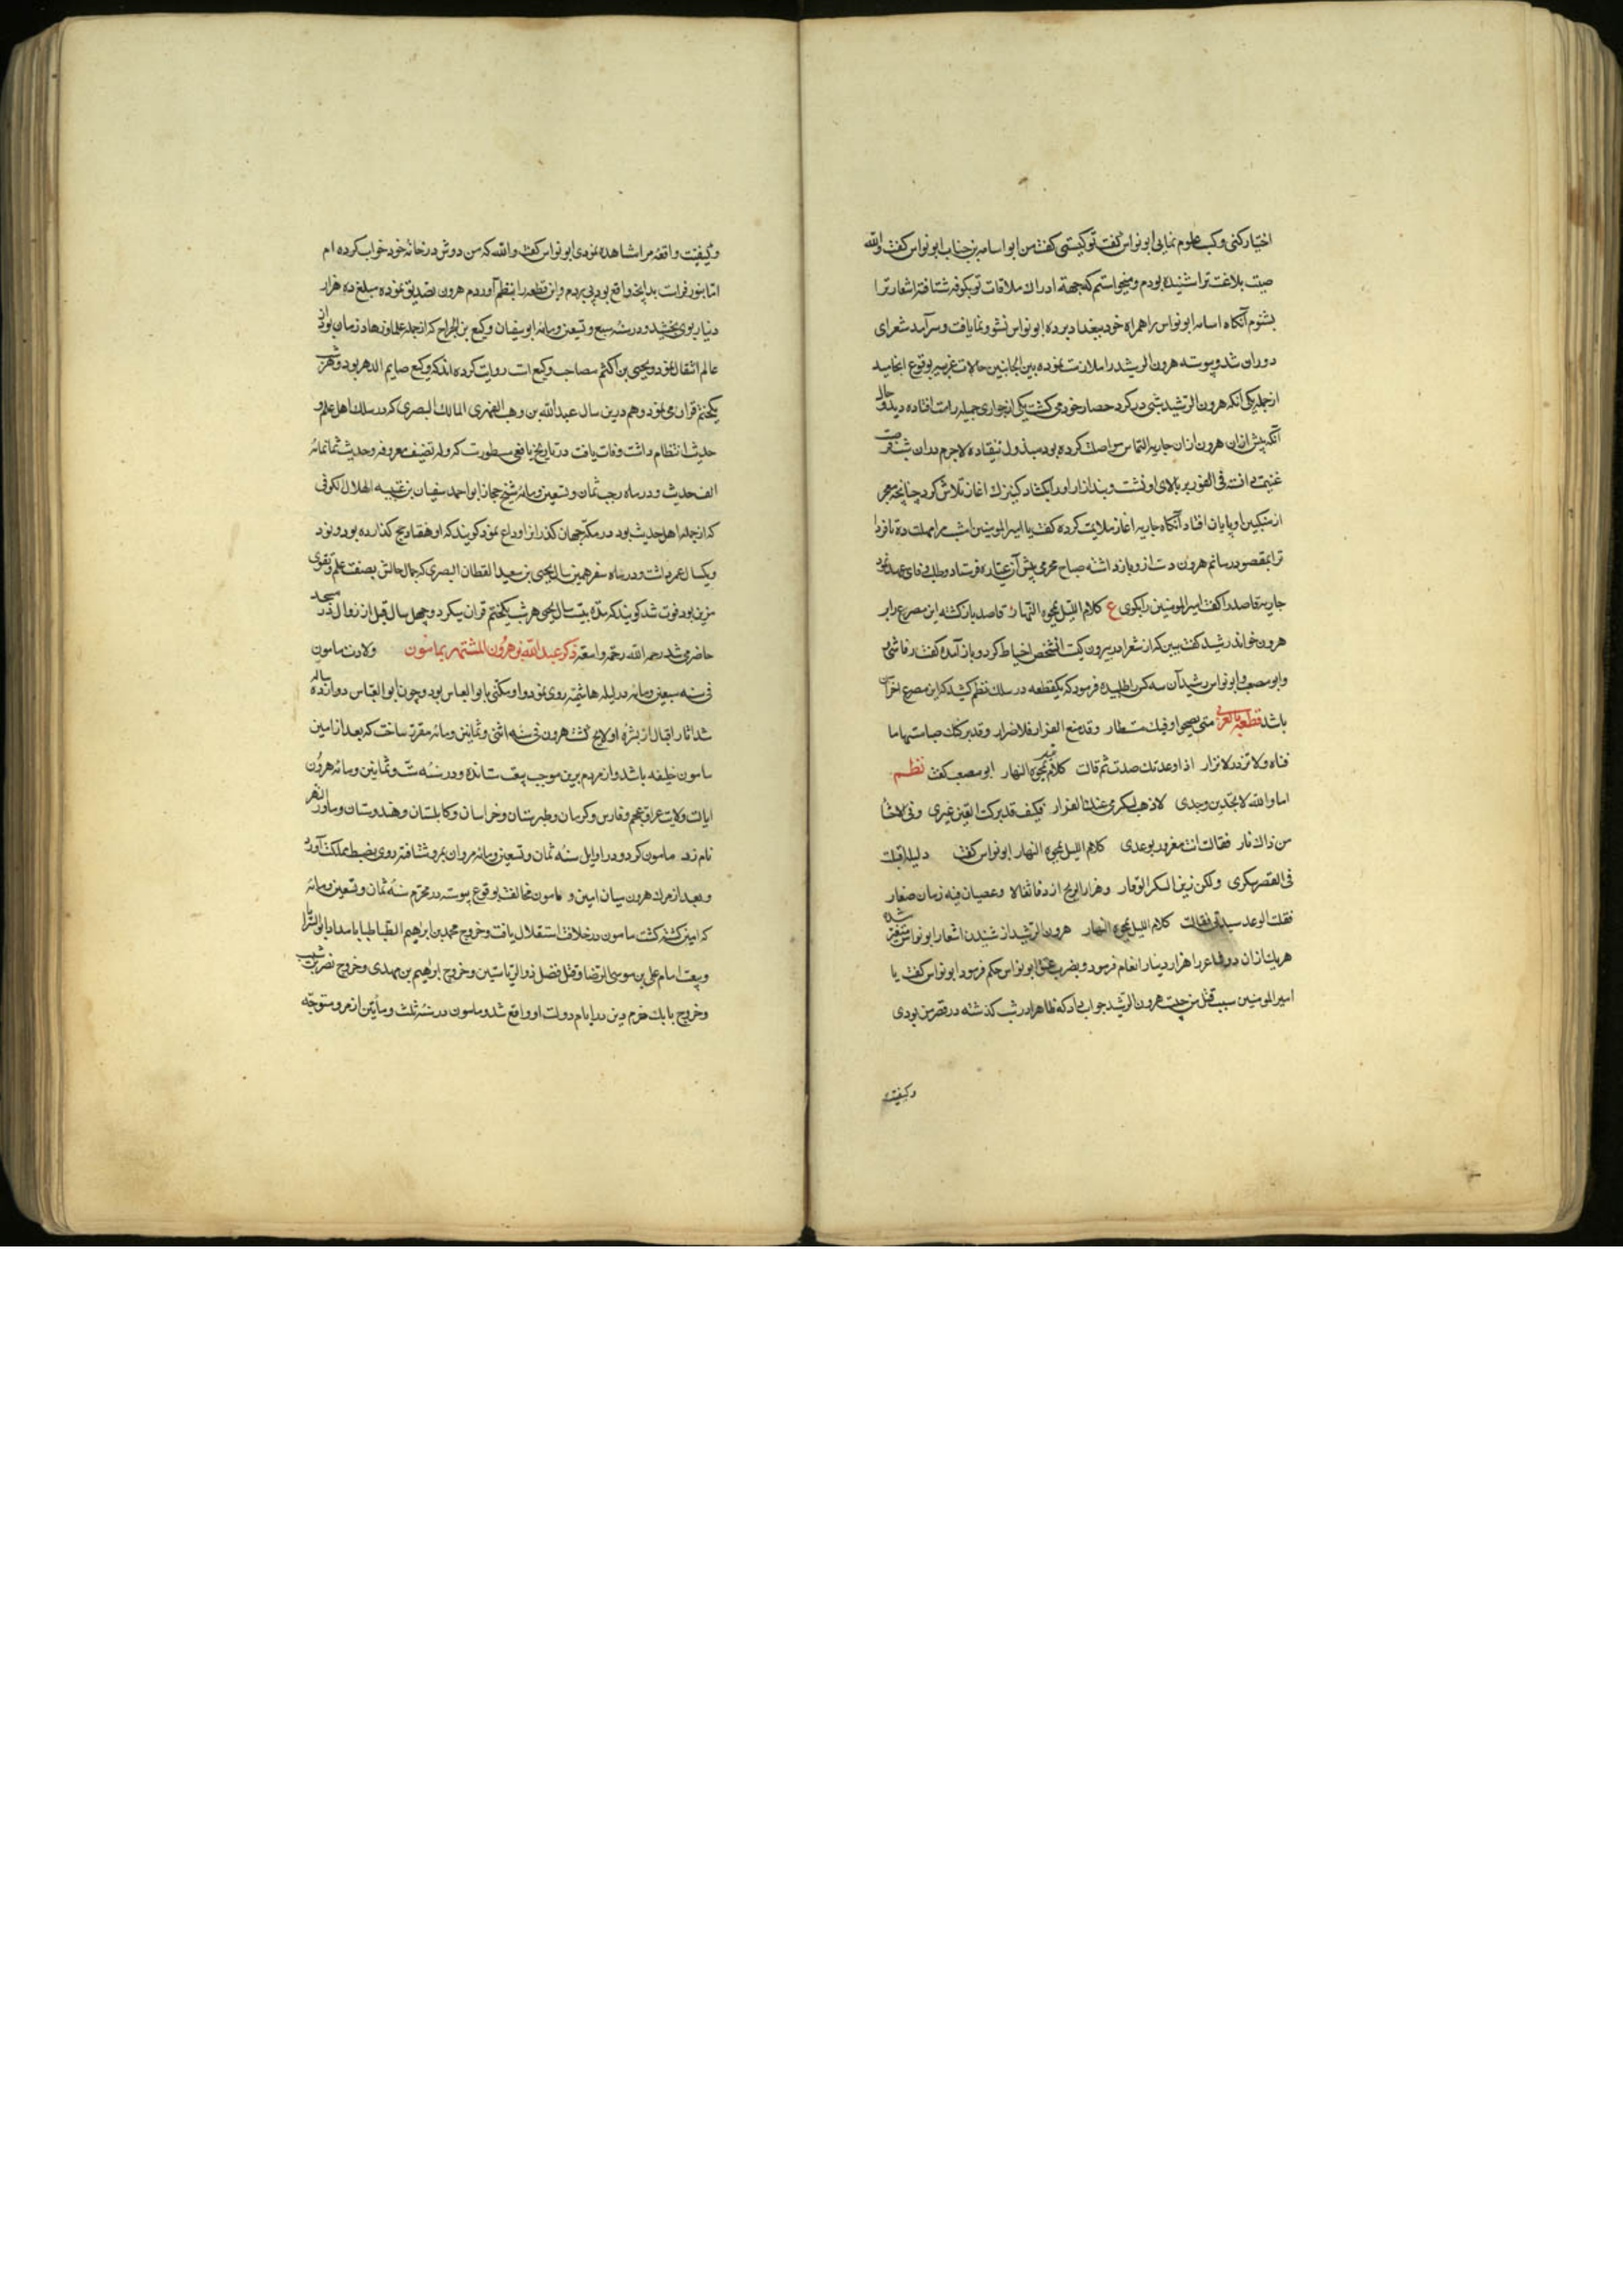 اختیار کنی و کسب علوم نمایی ابو نواس گفت تو کیستی گفت من ابو اسامه بن حباب ابو نواس گفت والله
صیت بلاغت ترا شنیده بودم و میخواستم که جهة ادراک ملاقات تو بکوفه شتافته اشعار ترا
بشنوم آنگاه اسامه ابو نواس را همراه خود ببغداد برده ابو نواس نشو و نما یافت و سرآمد شعرای
دوران شد و پیوسته هرون الرشید را ملازمت نموده بین الجانبین حالات غریبه بوقوع انجامید
از جمله یکی آنکه هرون الرشید شبی در کرد حصار خود می کشت یکی از جواری جمیله را مست افتاده دید و حال
آنکه پیش ازان هرون ازان جاریه التماس مواصلت کرده بود مبذول نیفتاده لاجرم دران شب فرصت
غنیمت دانسته فی الفور بر بالای او نشست و بند ازار او را بکشاد کنیزک اغاز تلاش کرد چنانچه معجر
از منکبین او بپایان افتاد آنگاه جاریه اغاز ملایمت کرده گفت یا امیر المومنین امشب مرا مهلت ده تا فردا
ترا بمقصود رسانم هرون دست ازو باز داشته صباح محرمی پیش آن عیاره فرستاد و طلب وفای عهد نمود
جاریه قاصد را گفت امیر المومنین را بگوی ع کلام اللیل یمحوه النهار قاصد باز گشته این مصرع را بر
هرون خواند رشید گفت ببین که از شعرا در بیرون کیست آنشخص احتیاط کرد و باز آمده گفت رقاشی
و ابو مصعب و ابو نواس رشید آن سه کس را طلبیده فرمود که یکقطعه در سلک نظم کشید که این مصرع اخر آن
باشد قطعه بالعربی متی تصحوا و قلبک مستطار وقد منع القرار فلا قرار وقد ترکتک صبا مستهاما
فتاة لا تزور ولا تزار اذا وعدتک صدت ثم قالت کلام اللیل یمحوه النهار ابو مصعب گفت نظم
اما والله لو تجدین وجدی لاذهب الکری عنک الغرار فکیف وقد ترکت العین عبری وفی الاحشاء
من ذاک نار فقالت انت مغرور بوعدی کلام اللیل یمحوه النهار ابو نواس گفت ولیلة اقبلت
فی القصر سکری ولکن زین السکر الوقار وهز الریح اردافا ثقالا وغصنا فیه رمان صغار
فقلت الوعد سیدتی فقالت کلام اللیل یمحوه النهار هرون الرشید از شنیدن اشعار ابو نواس متغیر شده
هریک ازان دو شاعر را هزار دینار انعام فرمود و بضرب عنق ابو نواس حکم فرمود ابو نواس گفت یا
امیر المومنین سبب قتل من چیست هرون الرشید جواب داد که ظاهرا در شب گذشته در قصر من بودی
و کیفیت
و کیفیت واقعه مرا مشاهده نمودی ابو نواس گفت والله که من دوش در خانه خود خواب کرده ام
اما بنور فراست بدانچه واقع بود پی بردم و این قطعه را بنظم آوردم هرون تصدیق نموده مبلغ ده هزار
دینار بوی بخشید و در سنه سبع و تسعین و مائه ابو سفیان وکیع بن الجراح که از جمله علما و زهاد زمان بود از
عالم انتقال نمود و یحیی بن اکثم مصاحب وکیع است روایت کرده اند که وکیع صایم الدهر بود و هر شب
یکختم قران می نمود و هم درین سال عبدالله بن وهب الفهری المالک البصری که در سلک اهل علم و
حدیث انتظام داشت وفات یافت در تاریخ یافعی مسطورست که وله تصنیف معروف و حدیث ثمانمائه
الف حدیث و در ماه رجب ثمان و تسعین و مائه شیخ حجاز ابو احمد سفیان بن عیینه الهلال الکوفی
که از جمله اهل حدیث بود در مکه جهان گذرانرا وداع نمود گویند که او هفتاد حج گذارده بود و نود
و یکسال عمر داشت و در ماه سفر همین سال یحیی بن سعید القطان البصری که جمال حالش بصفت علم و تقوی
مزین بود فوت شد گویند که مدة بیست سال یحیی هر شب یکختم قران میکرد و چهل سال قبل از زوال در مسجد
حاضر می شد رحمه الله رحمة واسعة ذکر عبدالله بن هرون المشتهر بمامون ولادت مامون
فی سنه سبعین و مائه در لیله هاشمیه روی نمود و او مکنی بابو العباس بود و چون ابو العباس دوازده ساله
شد اثار اقبال از بشره او لایح گشت هرون فی سنه اثنی و ثمانین و مائه مقرر ساخت که بعد از امین
مامون خلیفه باشد و از مردم برین موجب بیعت ستانده و در سنه ست و ثمانین و مائه هرون
ایالت ولایت عراق عجم و فارس و کرمان و طبرستان و خراسان و کابلستان و هندوستان و ماورا النهر
نام زد مامون کرد و در اوایل سنه ثمان و تسعین و مائه مروان بمرو شتافته روی بضبط مملکت آورد
و بعد از مرک هرون میان امین و مامون مخالفت بوقوع پیوسته در محرم سنه ثمان و تسعین و مائه
که امین کشته کشت مامون در خلافت استقلال یافت و خروج محمد بن ابراهیم الطباطبا بامداد ابو السرایا
و بیعت امام علی بن موسی الرضا و قتل فضل ذو الریاستین و خروج ابراهیم بن مهدی و خروج نصر بن شبیب
و خروج بابک خرم دین در ایام دولت او واقع شد و مامون در سنه ثلث و مأتین از مرو متوجه